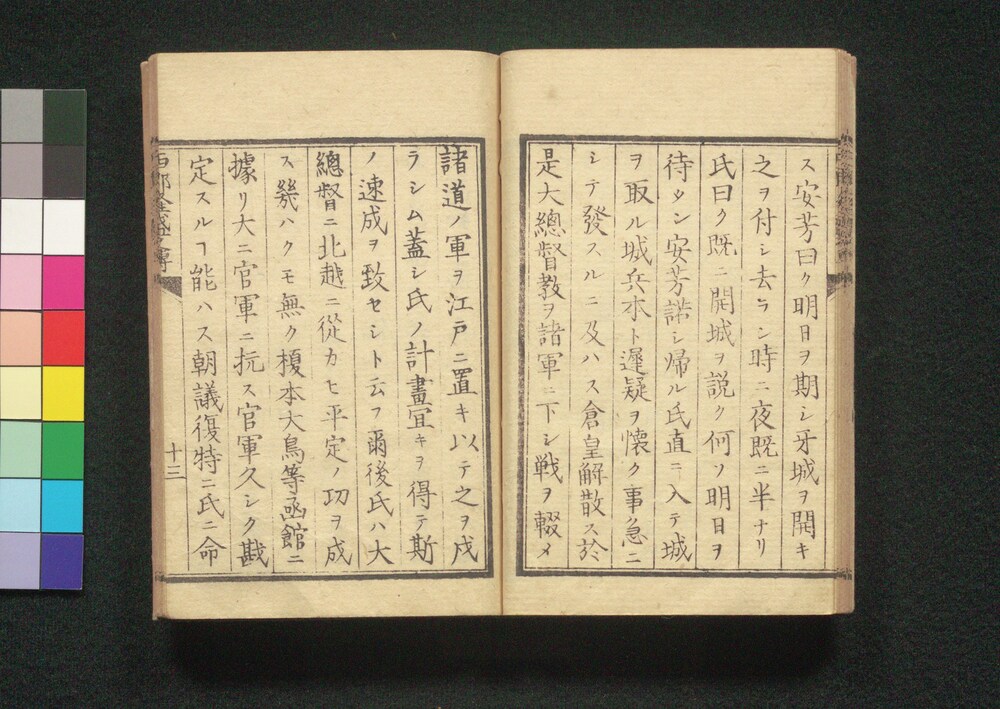 ス安芳曰ク明日ヲ期シ牙城ヲ開キ
之ヲ付シ去ラン時ニ夜既ニ半ナリ
氏曰ク既ニ開城ヲ説ク何ソ明日ヲ
待タン安芳諾シ帰ル氏直ニ入テ城
ヲ取ル城兵本ト遅疑ヲ懐ク事急ニ
シテ發スルニ及ハス倉皇解散ス於
是大總督教ヲ諸軍ニ下シ戦ヲ輟メ
諸道ノ軍ヲ江戸ニ置キ以テ之ヲ戍
ラシム蓋シ氏ノ計畫宜キヲ得テ斯
ノ速成ヲ致セシト云フ爾後氏ハ大
總督ニ北越ニ從カヒ平定ノ功ヲ成
ス幾ハクモ無ク榎本大鳥等函館ニ
據リ大ニ官軍ニ抗ス官軍久シク戡
定スルヿ能ハス朝議復特ニ氏ニ命
西郷隆盛傳
十三